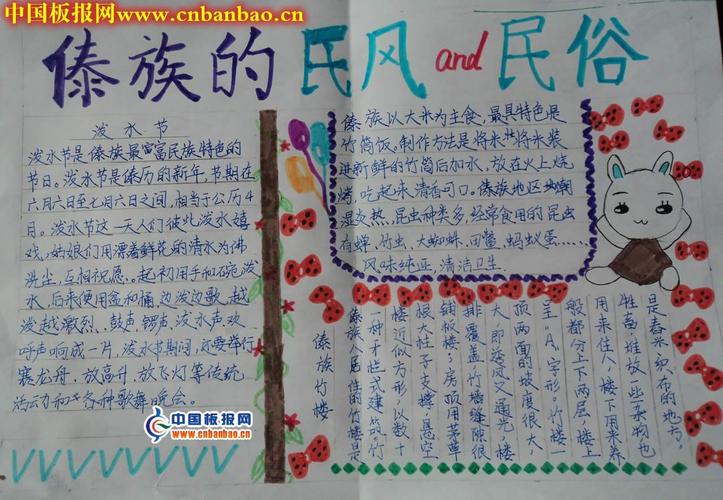 中国板报网
www.cnbanbao.cn
傣族的民风and民俗
泼水节
泼水节是傣族最富民族特色的
节日。泼水节是傣历的新年,节期在
六月六日至七月六日之间,相当于公历4
月。泼水节这一天人们彼此泼水嬉
戏,姑娘们用漂着鲜花的清水为佛
洗尘,互相祝愿。起初用手和碗泼
水,后来便用盆和桶,边泼边歌,越
泼越激烈、鼓声、锣声,泼水声、欢
呼声响成一片,泼水节期间,还要举行
赛龙舟,放高升,放飞灯等传统
活动和各种歌舞晚会。
傣族以大米为主食,最具特色是
竹筒饭。制作方法是将米装
进新鲜的竹筒后加水,放在火上烧
烤,吃起来清香可口。傣族地区
湿炎热,昆虫种类多,经常食用的昆虫
有蝉,竹虫,大蜘蛛,田鳖,蚂蚁蛋……
风味纯正,清洁卫生
傣族竹楼
傣族人居住的竹楼是
一种干栏式建筑。竹
楼近似方形,以数十
根大竹子支撑,悬空
铺楼板;房顶用茅草
排覆盖,竹墙缝隙很
大,即透风又通光,楼
顶两面的坡度很大,
呈"A"字形。竹楼一
般都分上下两层,楼上
用来住人,楼下用来养
牲畜,堆放一些杂物也
是舂米、织布的地方。
中国板报网
www.cnbanbao.cn